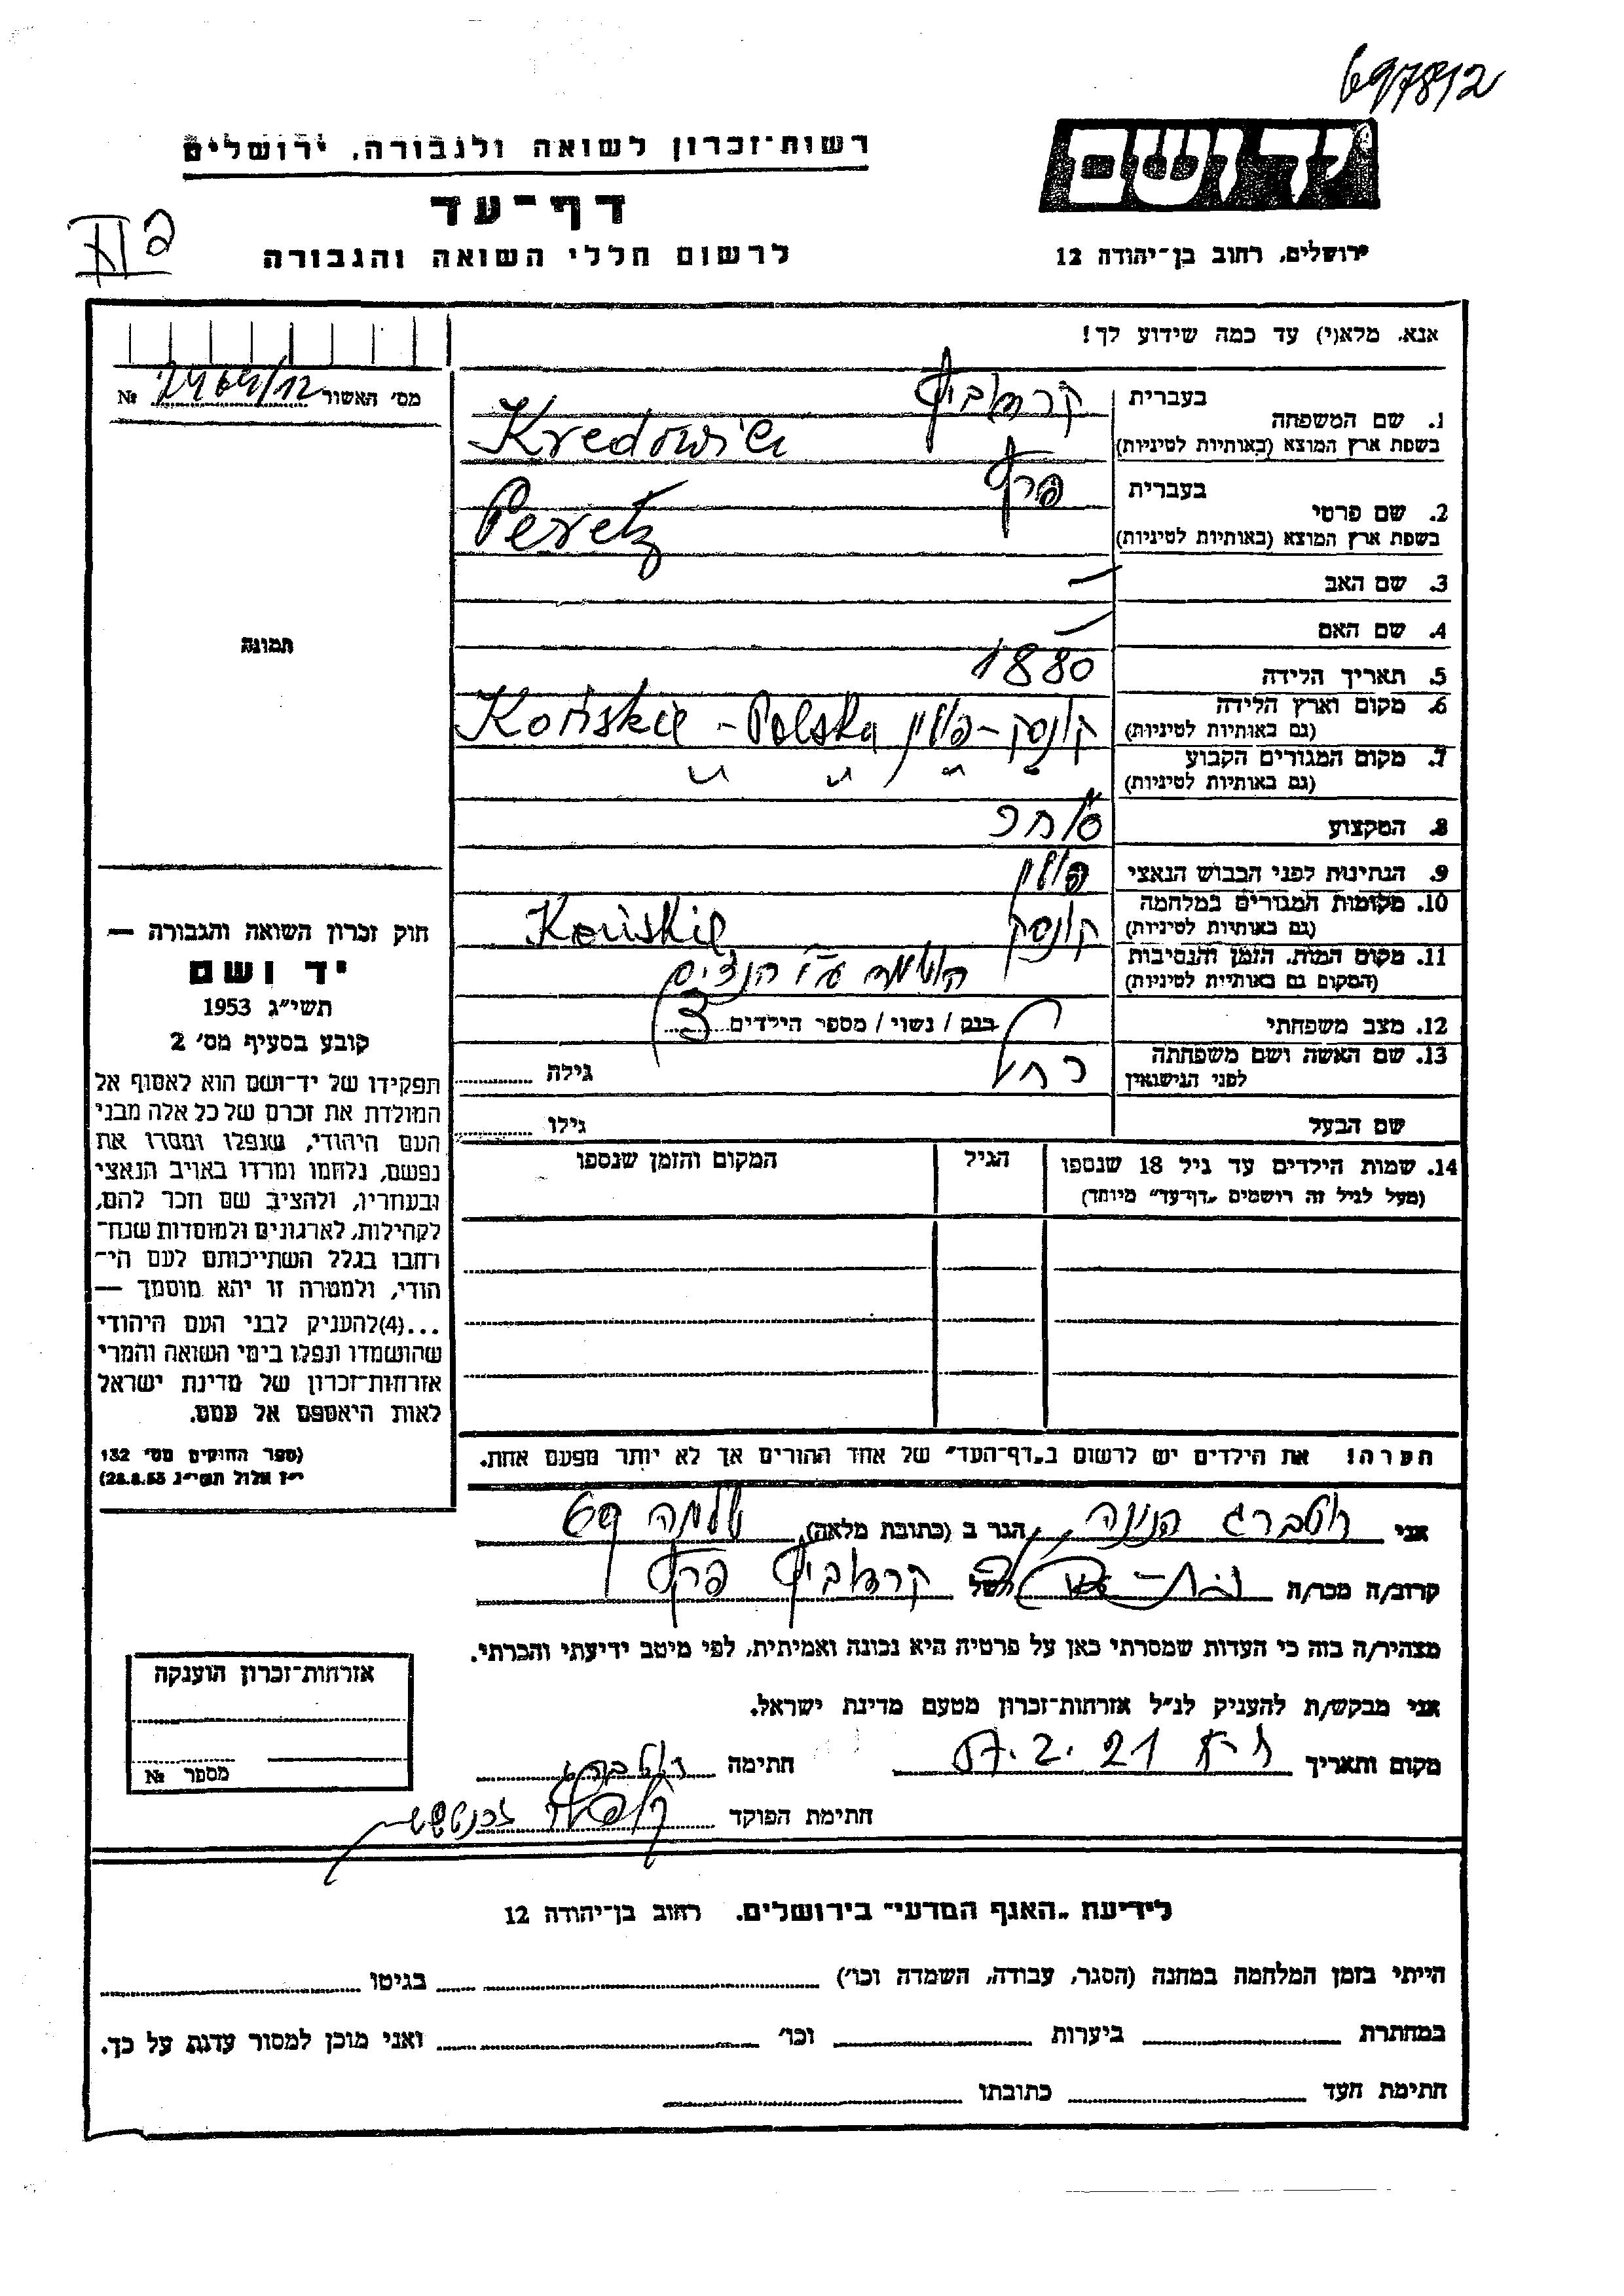 697812
רשות־זכרון לשואה ולגבורה, ירושלים
דף־עד
לרשום חללי השואה והגבורה
יד ושם
ירושלים, רחוב בן־יהודה 12
אנא, מלא(י) עד כמה שידוע לך!
מס' האשור № 2464/12
1. שם המשפחה בעברית קרדוביץ
בשפת ארץ המוצא (באותיות לטיניות) Kredowicz
2. שם פרטי בעברית פרץ
בשפת ארץ המוצא (באותיות לטיניות) Peretz
3. שם האב —
4. שם האם —
תמונה
5. תאריך הלידה 1880
6. מקום וארץ הלידה (גם באותיות לטיניות) קונסק - פולין Końskie - Polska
7. מקום המגורים הקבוע (גם באותיות לטיניות) " " " "
8. המקצוע סוחר
9. הנתינות לפני הכבוש הנאצי פולין
10. מקומות המגורים במלחמה (גם באותיות לטיניות) קונסק Końskie
11. מקום המות, הזמן והנסיבות (המקום גם באותיות לטיניות) הושמד ע"י הנצים
12. מצב משפחתי רווק / נשוי / מספר הילדים 3
13. שם האשה ושם משפחתה לפני הנישואין רחל גילה
שם הבעל גילו
14. שמות הילדים עד גיל 18 שנספו
(מעל לגיל זה רושמים „דף־עד" מיוחד)
הגיל
המקום והזמן שנספו
חוק זכרון השואה והגבורה —
יד ושם
תשי"ג 1953
קובע בסעיף מס' 2
תפקידו של יד־ושם הוא לאסוף אל
המולדת את זכרם של כל אלה מבני
העם היהודי, שנפלו ומסרו את
נפשם, נלחמו ומרדו באויב הנאצי
ובעוזריו, ולהציב שם וזכר להם,
לקהילות, לארגונים ולמוסדות שנח־
רחבו בגלל השתייכותם לעם הי־
הודי, ולמטרה זו יהא מוסמך —
...(4)להעניק לבני העם היהודי
שהושמדו ונפלו בימי השואה והמרי
אזרחות־זכרון של מדינת ישראל
לאות היאספם אל עמם.
(ספר החוקים מס' 132
י"ז אלול תשי"ג 28.8.53)
הערה! את הילדים יש לרשום ב„דף־העד" של אחד ההורים אך לא יותר מפעם אחת.
אני רוטברג הגר ב (כתובת מלאה) שלמה 69
קרוב/ה מכר/ה של קרדוביץ פרץ
מצהיר/ה בזה כי העדות שמסרתי כאן על פרטיה היא נכונה ואמיתית, לפי מיטב ידיעתי והכרתי.
אני מבקש/ת להעניק לנ"ל אזרחות־זכרון מטעם מדינת ישראל.
מקום ותאריך ת-א 21.2.57 חתימה רוטברג
חתימת הפוקד
אזרחות־זכרון הוענקה
מספר №
לידיעת „האגף המדעי" בירושלים. רחוב בן־יהודה 12
הייתי בזמן המלחמה במחנה (הסגר, עבודה, השמדה וכו') בגיטו
במחתרת ביערות וכו' ואני מוכן למסור עדות על כך.
חתימת העד כתובתו